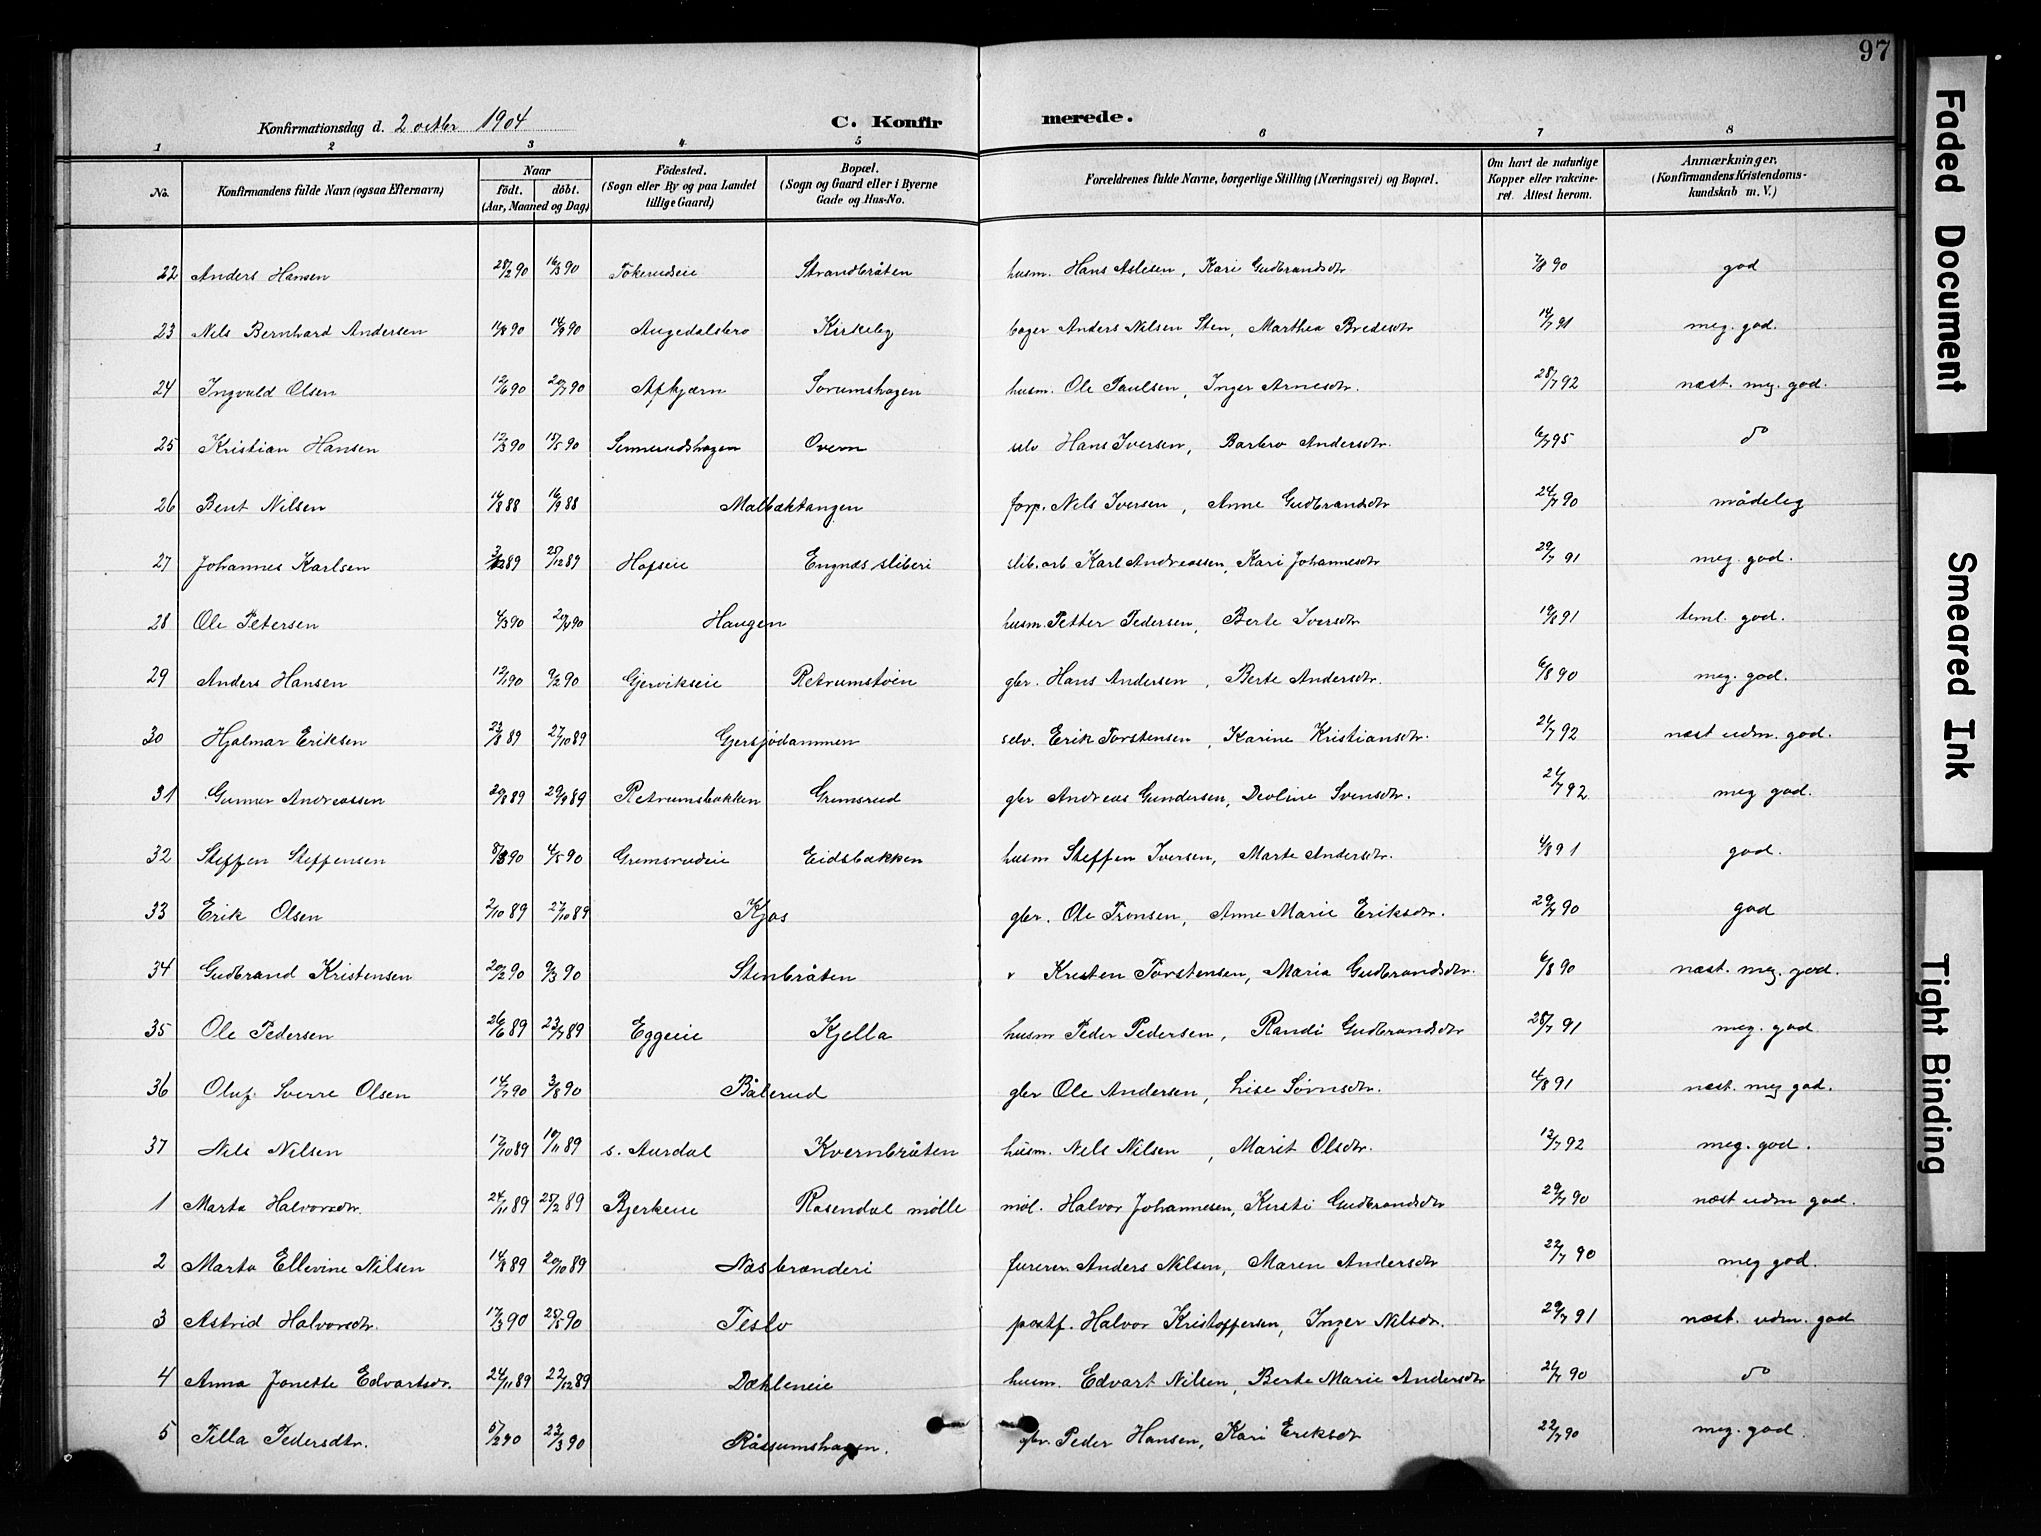 97
Konfirmationsdag d. 2 octbr 1904 C. Konfirmerede.
1 2 3 4 5 6 7 8
No. Konfirmandens fulde Navn (ogsaa Efternavn) Naar født. døbt. (Aar, Maaned og Dag) Födested. (Sogn eller By og paa Landet tillige Gaard) Bopæl. (Sogn og Gaard eller i Byerne Gade og Hus-No. Forældrenes fulde Navne, borgerlige Stilling (Næringsvei) og Bopæl. Om havt de naturlige Kopper eller vakcineret. Attest herom. Anmærkninger. (Konfirmandens Kristendomskundskab m. V.)
22 Anders Hansen 28/2 90 16/3 90 Tokerudseie Strandbråten husm. Hans Aslesen, Kari Gudbrandsdtr 7/8 90 god
23 Nils Bernhard Andersen 11/8 90 14/9 90 Augedalsbro Kirkeby bager Anders Nilsen Sten, Marthea Bredesdtr 14/7 91 meg. god.
24 Ingvald Olsen 12/6 90 20/7 90 Afkjærn Sorumshagen husm. Ole Paulsen, Inger Arnesdtr. 28/7 92 næst. meg. god.
25 Kristian Hansen 12/3 90 15/5 90 Sennerudshagen Overn selv Hans Iversen, Barbro Andersdtr. 6/7 95 do
26 Bent Nilsen 14/8 88 16/9 88 Malbæktangen forp. Nils Iversen, Anne Gudbrandsdtr 24/7 90 mådelig
27 Johannes Karlsen 3/12 89 25/12 89 Hofseie Engnæs sliberi slib.arb. Karl Andreassen, Kari Johannesdtr 29/7 91 meg. god.
28 Ole Petersen 4/3 90 20/4 90 Haugen husm. Petter Pedersen, Berte Iversdtr 19/8 91 teml. god.
29 Anders Hansen 12/1 90 9/2 90 Gjervikseie Retrumstøen gbr. Hans Andersen, Berte Andersdtr. 6/8 90 meg. god.
30 Hjalmar Eriksen 22/8 89 27/10 89 Gjersjødammen selv. Erik Torstensen, Karine Kristiansdtr. 21/7 92 næst udm. god.
31 Gunnar Andreassen 20/8 89 29/9 89 Retrumsbakken Grimsrud gbr Andreas Gundersen, Deoline Svensdtr. 21/7 92 meg god.
32 Steffen Steffensen 8/3 90 4/5 90 Grimsrudeie Eidsbakken husm Steffen Iversen, Marte Andersdtr. 4/8 91 god.
33 Erik Olsen 2/10 89 27/10 89 Kjos gbr. Ole Tronsen, Anne Marie Eriksdtr. 29/7 90 god
34 Gudbrand Kristensen 20/2 90 9/3 90 Stenbråten Kristen Torstensen, Maria Gudbrandsdtr. 6/8 90 næst. meg. god.
35 Ole Pedersen 26/6 89 23/7 89 Eggeeie Kjella husm Peder Pedersen, Randi Gudbrandsdtr 28/7 91 meg. god
36 Oluf Sverre Olsen 14/7 90 3/8 90 Bålerud gbr Ole Andersen, Lise Sørnsdtr. 4/8 91 næst. meg god.
37 Nils Nilsen 17/10 89 10/11 89 s. Aurdal Kvernbråten husm. Nels Nilsen, Marit Olsdtr. 12/7 92 meg. god.
1 Marta Halvorsdtr. 24/11 89 25/12 89 Bjerkeeie Rosendal mølle møl. Halvor Johannesen, Kirsti Gudbrandsdtr 29/7 90 næst udm god.
2 Marta Ellevine Nilsen 14/8 89 20/10 89 Næsbrænderi Anders Nilsen, Maren Andersdtr 22/7 90 meg god.
3 Astrid Halvorsdtr. 17/3 90 25/5 90 Teslo postf. Halvor Kristoffersen, Inger Nilsdtr. 29/7 91 næst. udm. god
4 Anna Jonette Edvartsdtr. 24/11 89 22/12 89 Dæhleneie husm. Edvart Nilsen, Berte Marie Andersdtr 21/7 90 do
5 Tilla Pedersdtr. 5/2 90 23/3 90 Råssumshagen. gbr. Peder Hansen, Kari Eriksdtr 22/7 90 meg. god.
Faded Document
Smeared Ink
Tight Binding